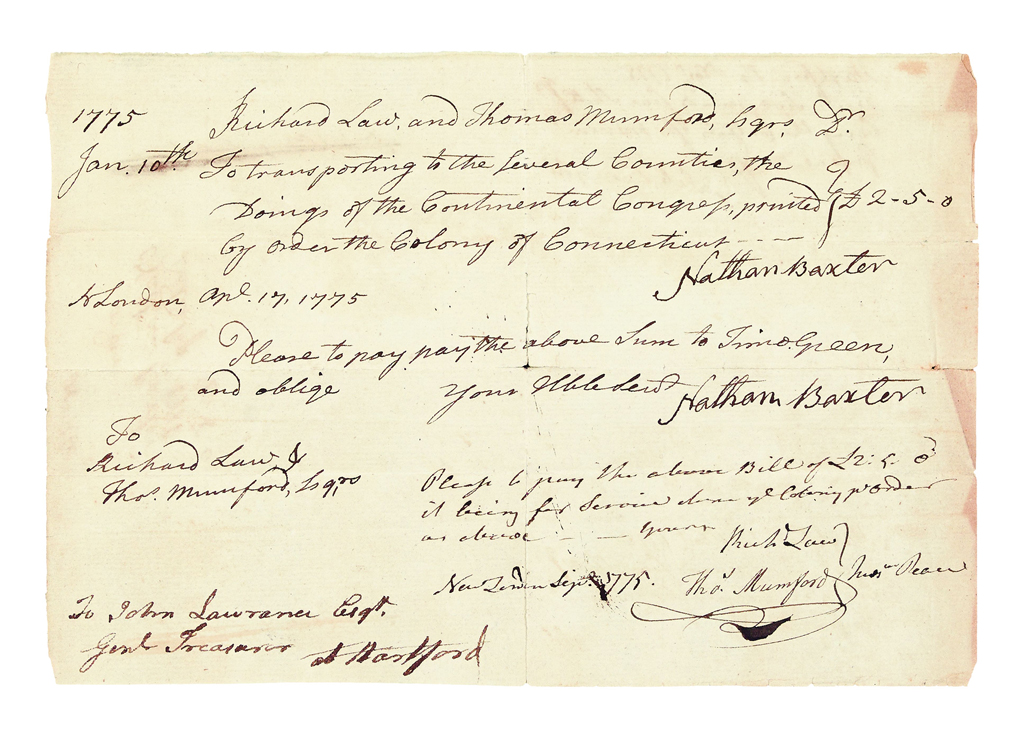 1775 Richard Law, and Thomas Mumford, Esqrs. Dr.
Jan. 10th. To transporting to the several Counties, the
Doings of the Continental Congress, printed £2-5-0
by order the Colony of Connecticut ----
Nathan Baxter
N London, Apl. 17, 1775
Please to pay pay the above Sum to Timo. Green,
and oblige Your Hble Servt Nathan Baxter
To
Richard Law &
Thos. Mumford, Esqrs
Please to pay the above Bill of £2.5.0
it being for Service done ye Colony pr order
as above -- Yours
Richd. Law
New Londn Sepr. 1775. Thos. Mumford Jus. Peace
To John Lawrance Esqr.
Genl Treasurer at Hartford